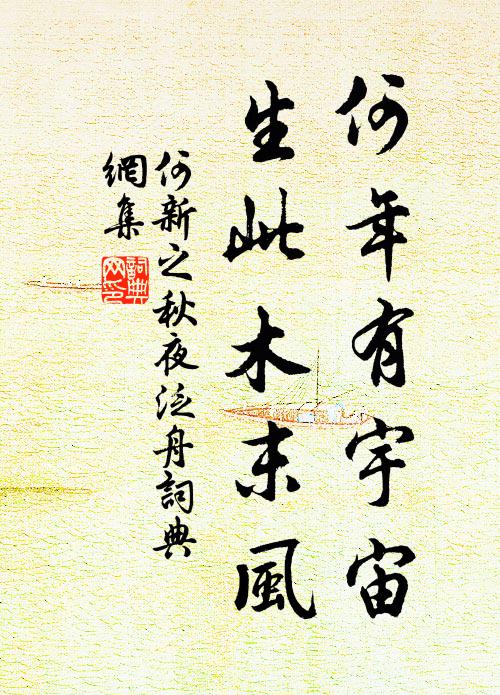 何年有宇宙
生此木末風
何新之秋夜泛舟詞典
網集
詞典
网印